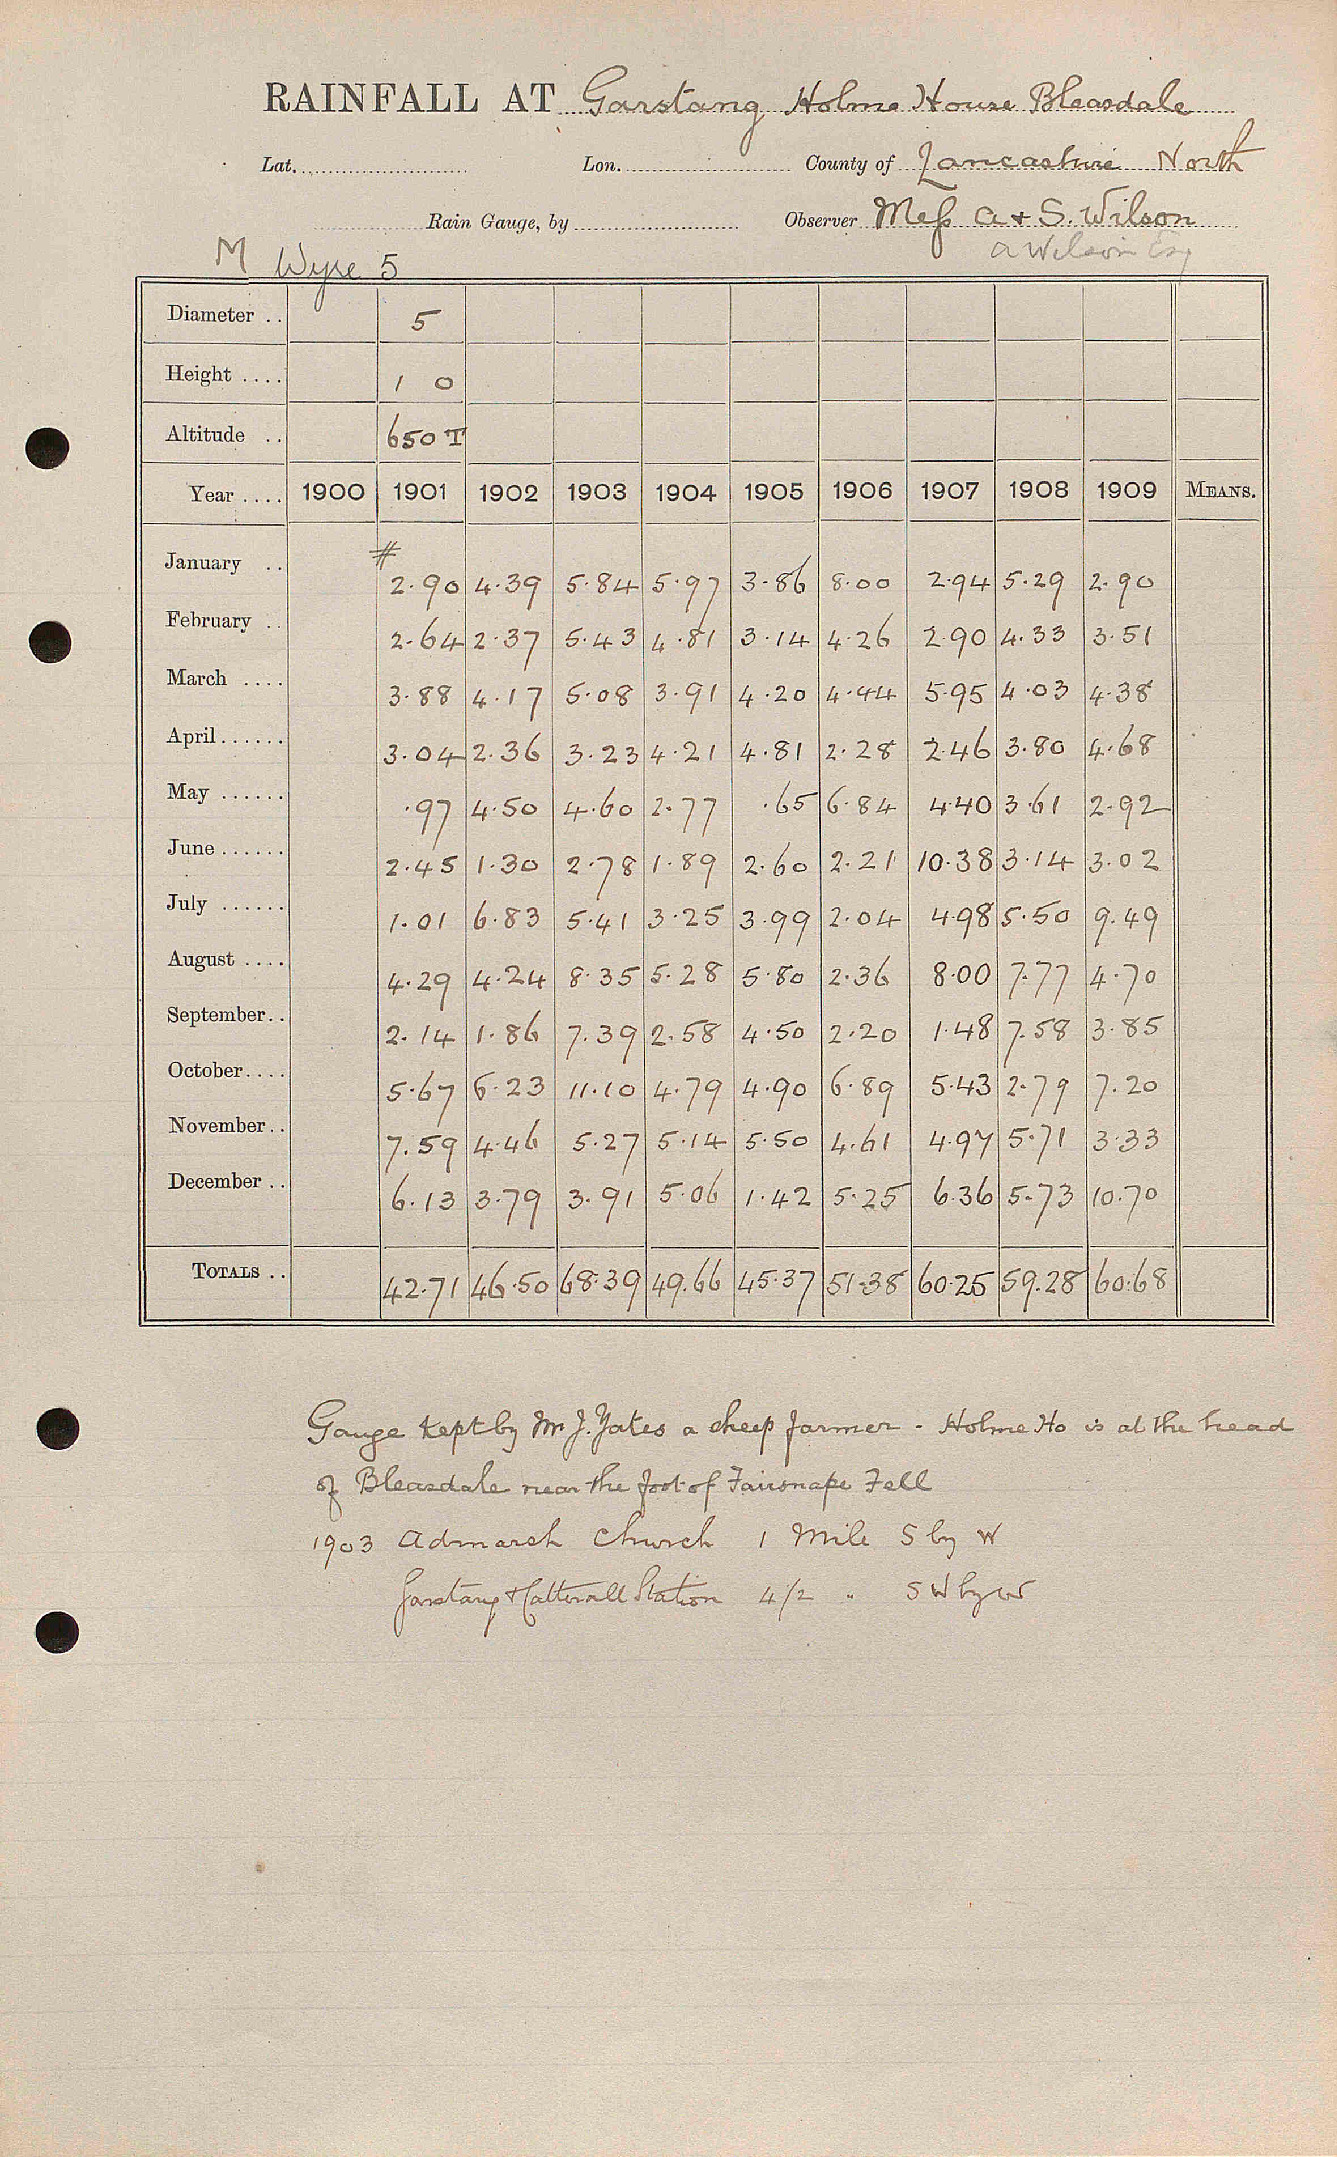 RAINFALL AT Garstang Holme House Bleasdale
Lat. Lon. County of Lancashire North
Rain Gauge, by Observer Mess A + S. Wilson
A Wilson Esq
M Wyre 5
Diameter .. 5
Height .... 1 0
Altitude .. 650 T
Year .... 1900 1901 1902 1903 1904 1905 1906 1907 1908 1909 MEANS.
#
January .. 2.90 4.39 5.84 5.97 3.86 8.00 2.94 5.29 2.90
February .. 2.64 2.37 5.43 4.81 3.14 4.26 2.90 4.33 3.51
March .... 3.88 4.17 5.08 3.91 4.20 4.44 5.95 4.03 4.38
April...... 3.04 2.36 3.23 4.21 4.81 2.28 2.46 3.80 4.68
May ...... .97 4.50 4.60 2.77 .65 6.84 4.40 3.61 2.92
June...... 2.45 1.30 2.78 1.89 2.60 2.21 10.38 3.14 3.02
July ...... 1.01 6.83 5.41 3.25 3.99 2.04 4.98 5.50 9.49
August .... 4.29 4.24 8.35 5.28 5.80 2.36 8.00 7.77 4.70
September.. 2.14 1.86 7.39 2.58 4.50 2.20 1.48 7.58 3.85
October.... 5.67 6.23 11.10 4.79 4.90 6.89 5.43 2.79 7.20
November.. 7.59 4.46 5.27 5.14 5.50 4.61 4.97 5.71 3.33
December .. 6.13 3.79 3.91 5.06 1.42 5.25 6.36 5.73 10.70
TOTALS .. 42.71 46.50 68.39 49.66 45.37 51.38 60.25 59.28 60.68
Gauge kept by Mr J. Yates a sheep farmer - Holme Ho is at the head
of Bleasdale near the foot of Fairsnape Fell
1903 Admarsh Church 1 Mile S by W
Garstang & Catterall Station 4/2 " S W by W